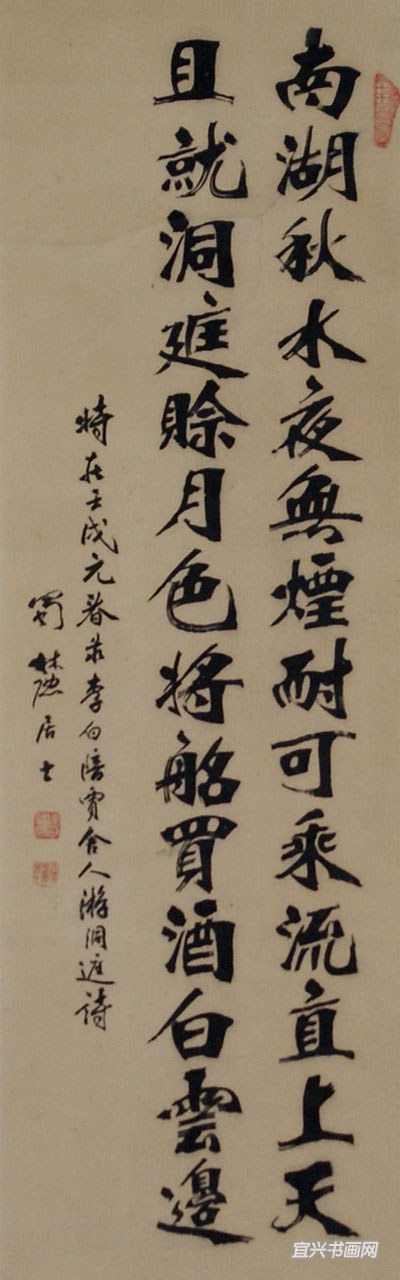 南湖秋水夜無煙耐可乘流直上天
且就洞庭賒月色將船買酒白雲邊
時在壬戌元春录李白陪賈舍人游洞庭詩
蜀林隱居士
宜兴书画网